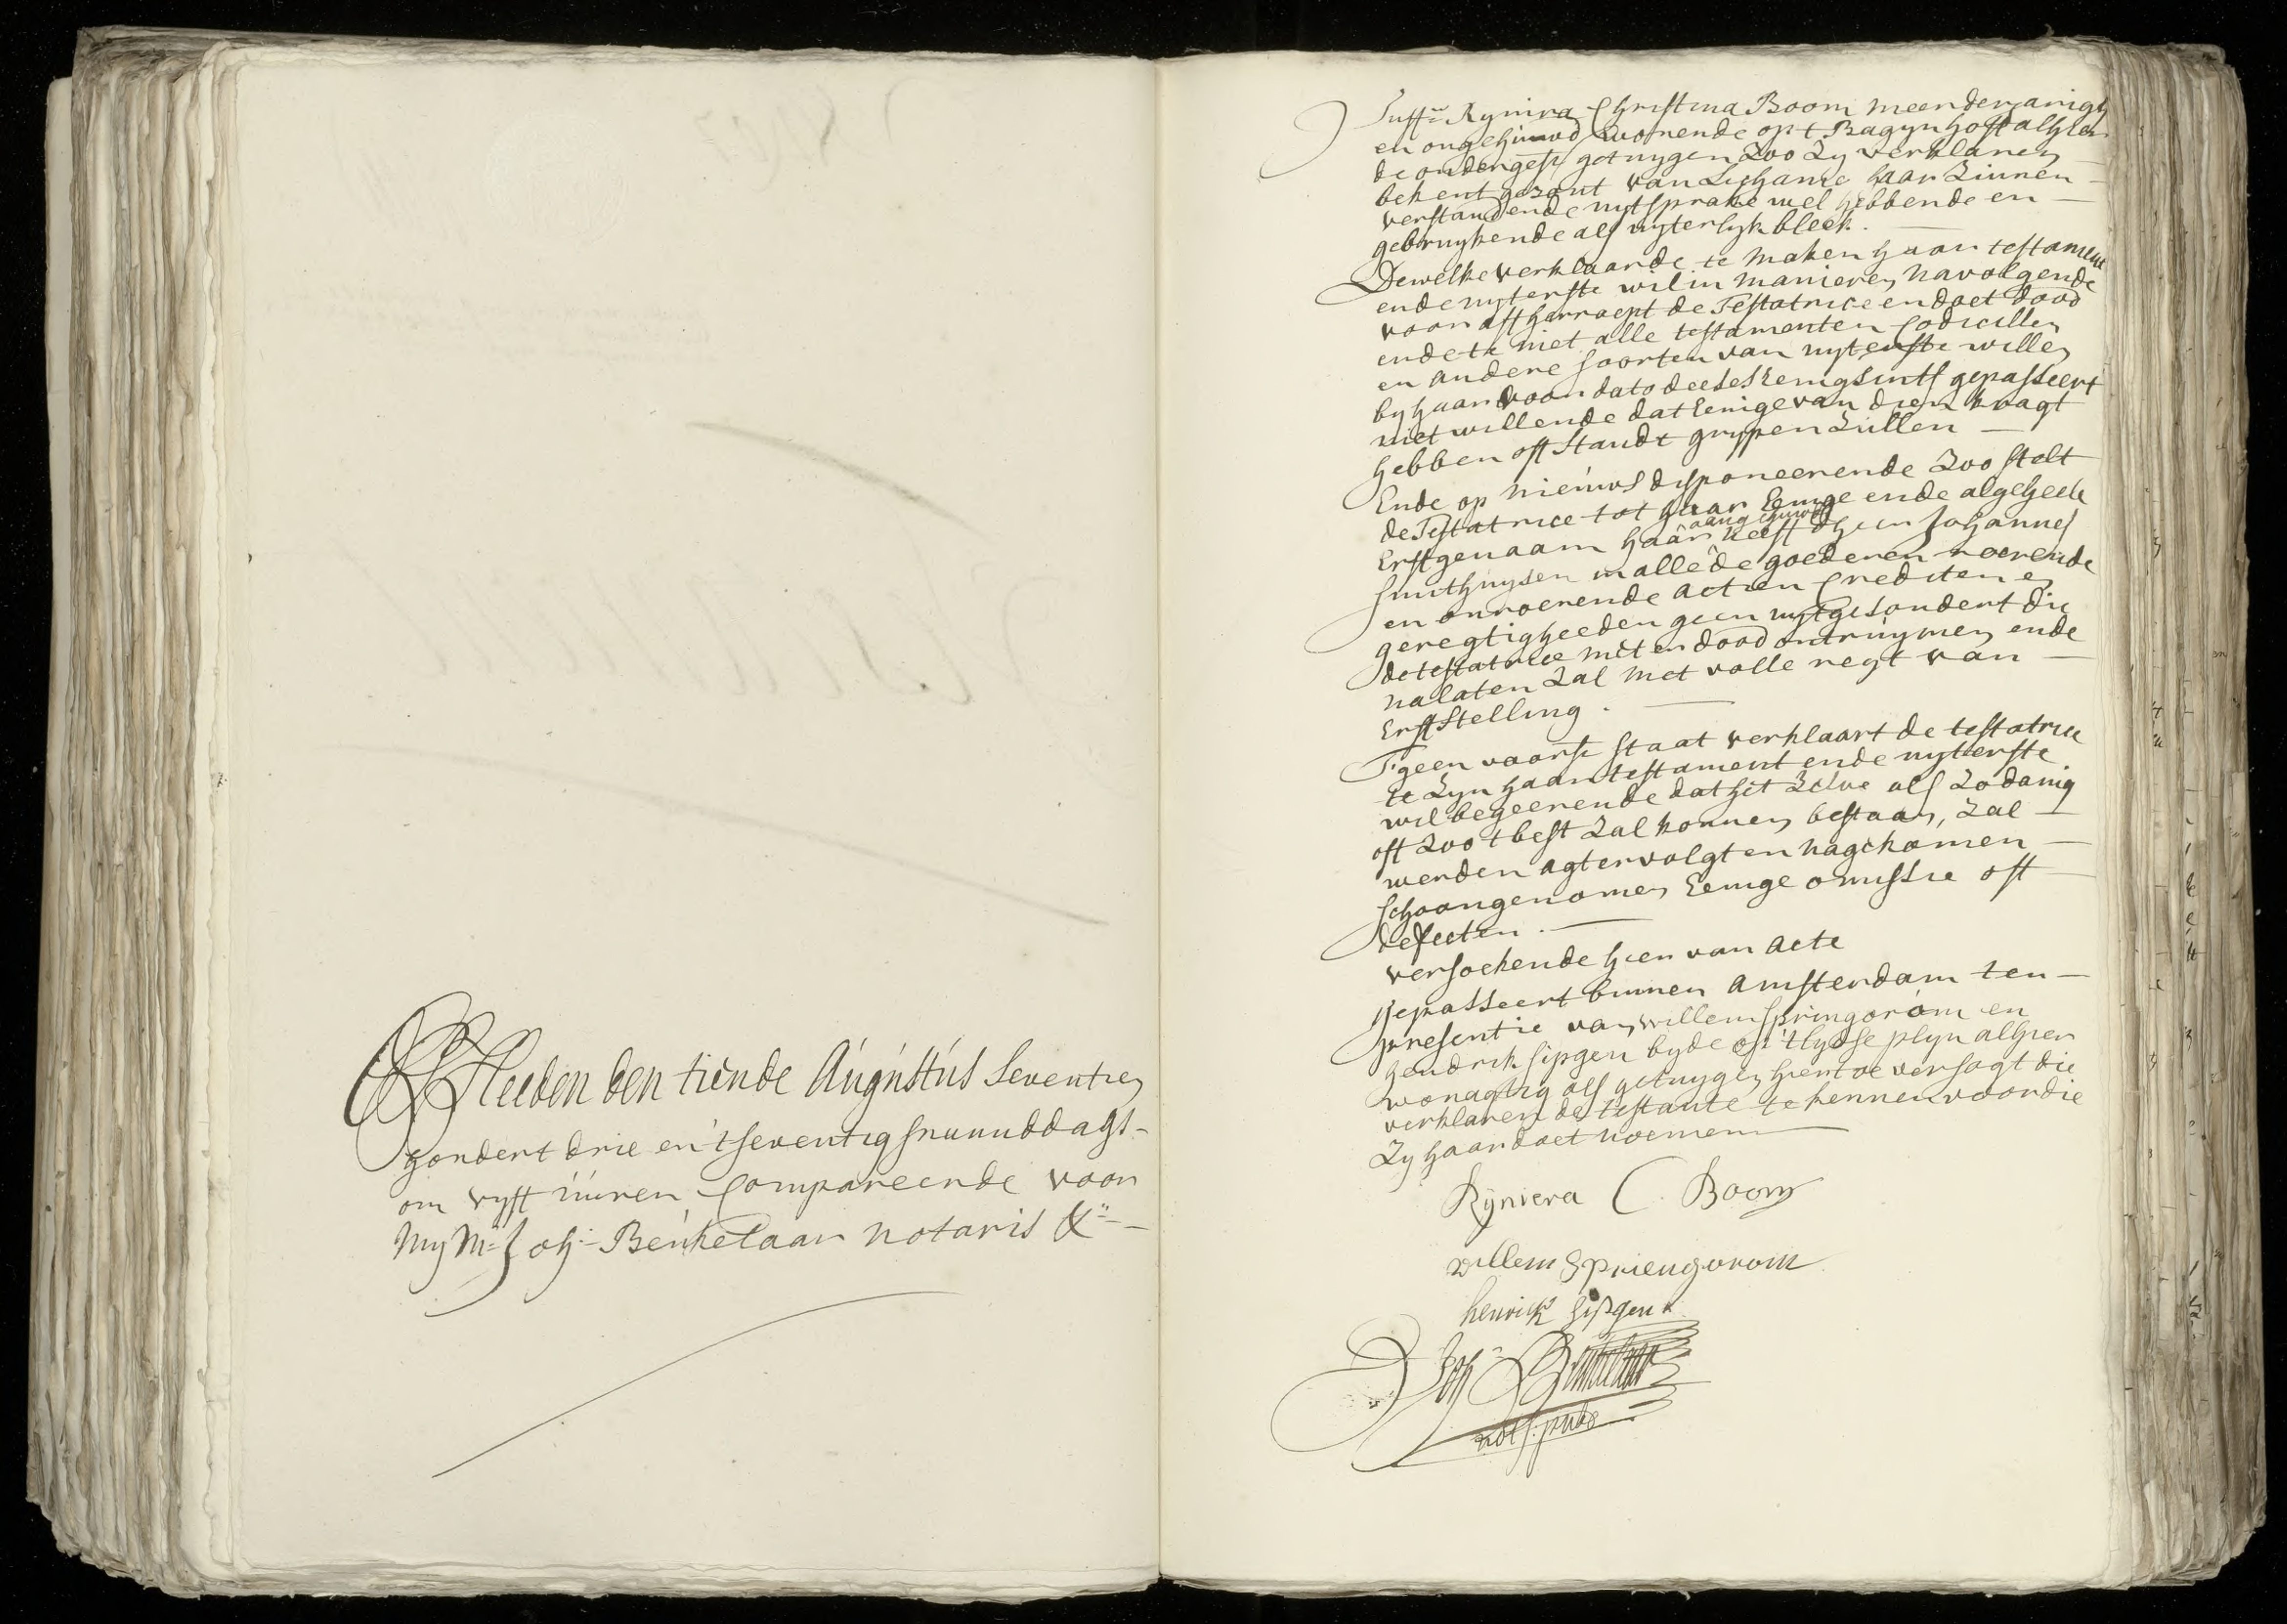 Heeden den tiende Augustus Seventien
hondert drie en 'tseventig snanuddags
om vyff uuren Compareerde voor
My Mr. Joh. Beukelaar notaris &c.
Juffr. Rynira Christina Boom meenderjarigh
en ongehuuwd wonende op 't Bagynhoff alhier
de ondergesz getuygen zoo zy verklaren
bekent gezont van Lichame haar Zinnen
verstandende uytsprake wel hebbende en
gebruykende als uyterlyk bleek.
Dewelke verklaarde te maken haar testament
ende uyterste wil in manieren navolgende
vooraff herroept de Testatrice en doet dood
ende te niet alle testamenten Codicillen
en andere soorten van uyterste willen
by haar voor dato deeses Eenigsints gepasseert
niet willende dat Eenige van dien kragt
hebben oft standt grypen zullen
Ende op nieuws disponeerende zoo stelt
de Testatrice tot haar Eenige ende algeheele
Erfgenaam haar aangehuwde Neeff dheer Johannes
Smithuysen in alle de goederen roerende
en onroerende actien Crediten en
geregtigheeden geen uytgesondert die
de testatrice met er dood ontruymen ende
nalaten zal met volle regt van
Erfstelling.
'T geen voorsz staat verklaart de testatrice
te zyn haar testament ende uytterste
wil begeerende dat het zelve als zodanig
oft zoo 't best zal konnen bestaan, zal
werden agtervolgt en nagekomen
schoon genomen Eenige omissie oft
defecten.
versoekende hier van acte
gepasseert binnen Amsterdam ten
presentie van Willem Springorom en
Hendrik Sipgen byde op 't Lydse plyn alhier
wonagtig als getuygen hiertoe versogt die
verklaren de testante te kennen voor die
Zy haar doet noemen
Rÿniera C. Boom
willem Spriengorom
henrick Sipgen
Joh. Beukelaar
nots. publ.